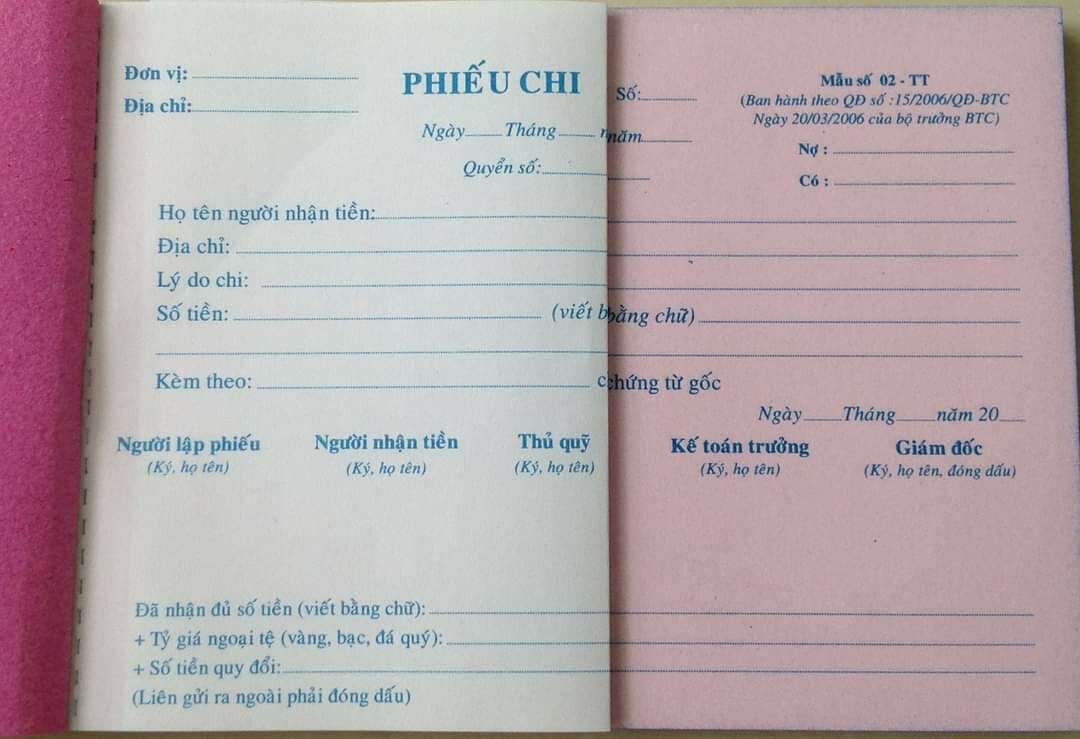 Đơn vị:
Địa chỉ:
PHIẾU CHI
Số:
Mẫu số 02 - TT
(Ban hành theo QĐ số :15/2006/QĐ-BTC
Ngày 20/03/2006 của bộ trưởng BTC)
Ngày Tháng năm
Quyển số:
Nợ :
Có :
Họ tên người nhận tiền:
Địa chỉ:
Lý do chi:
Số tiền: (viết bằng chữ)
Kèm theo: chứng từ gốc
Ngày Tháng năm 20
Người lập phiếu Người nhận tiền Thủ quỹ Kế toán trưởng Giám đốc
(Ký, họ tên) (Ký, họ tên) (Ký, họ tên) (Ký, họ tên) (Ký, họ tên, đóng dấu)
Đã nhận đủ số tiền (viết bằng chữ):
+ Tỷ giá ngoại tệ (vàng, bạc, đá quý):
+ Số tiền quy đổi:
(Liên gửi ra ngoài phải đóng dấu)